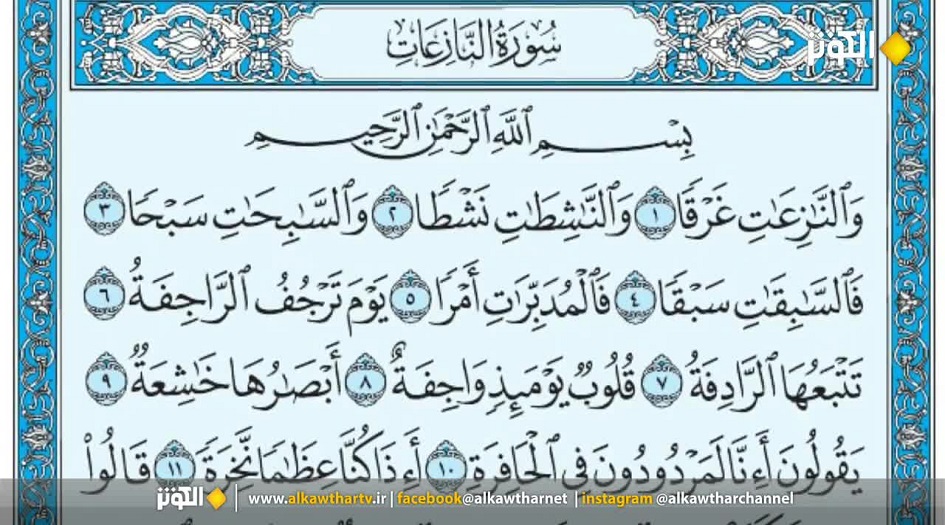 سُورَةُ النَّازِعَاتِ
الكوثر
بِسْمِ ٱللَّهِ ٱلرَّحْمَٰنِ ٱلرَّحِيمِ
وَٱلنَّٰزِعَٰتِ غَرْقًا ١ وَٱلنَّٰشِطَٰتِ نَشْطًا ٢ وَٱلسَّٰبِحَٰتِ سَبْحًا ٣
فَٱلسَّٰبِقَٰتِ سَبْقًا ٤ فَٱلْمُدَبِّرَٰتِ أَمْرًا ٥ يَوْمَ تَرْجُفُ ٱلرَّاجِفَةُ ٦
تَتْبَعُهَا ٱلرَّادِفَةُ ٧ قُلُوبٌ يَوْمَئِذٍ وَاجِفَةٌ ٨ أَبْصَٰرُهَا خَٰشِعَةٌ ٩
يَقُولُونَ أَءِنَّا لَمَرْدُودُونَ فِى ٱلْحَافِرَةِ ١٠ أَءِذَا كُنَّا عِظَٰمًا نَّخِرَةً ١١ قَالُوا۟
الكوثر | www.alkawthartv.ir | facebook@alkawtharnet | instagram @alkawtharchannel